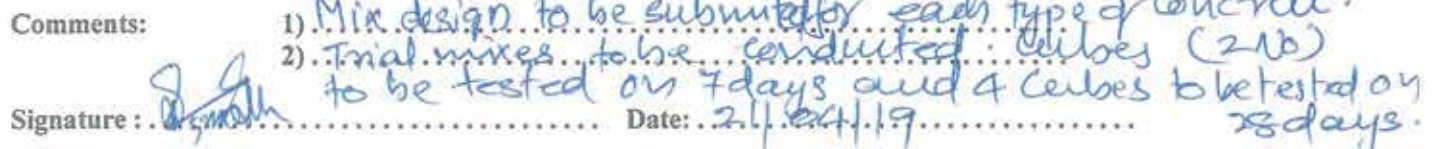 Comments: 1) Mix design to be submitted for each type of concrete.
2) Trial mixes to be conducted. Cubes (2 No)
to be tested on 7 days and 4 Cubes to be tested on
Signature : Date: 21/04/19 28 days.